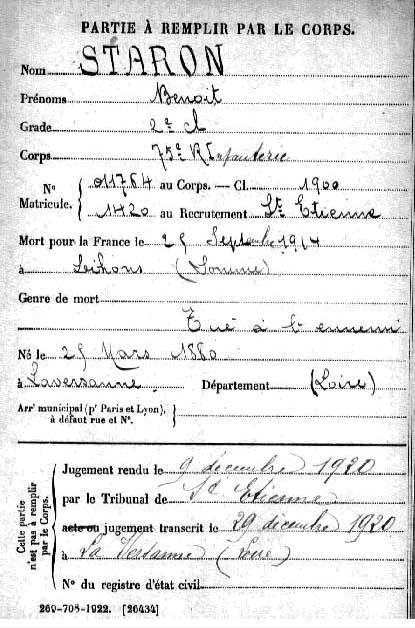 PARTIE À REMPLIR PAR LE CORPS.
Nom STARON
Prénoms Benoit
Grade 2e cl
Corps 75e R Infanterie
N° Matricule. { 011764 au Corps. — Cl. 1900
1420 au Recrutement St Etienne
Mort pour la France le 25 Septembre 1914
à Lihons (Somme)
Genre de mort
Tué à l'ennemi
Né le 25 Mars 1880
à Laversanne Département (Loire)
Arrt municipal (pr Paris et Lyon), }
à défaut rue et N°.
Cette partie n'est pas à remplir par le Corps.
Jugement rendu le 9 décembre 1920
par le Tribunal de St Etienne
acte ou jugement transcrit le 29 décembre 1920
à La Versanne (Loire)
N° du registre d'état civil
269-708-1922. [26434]